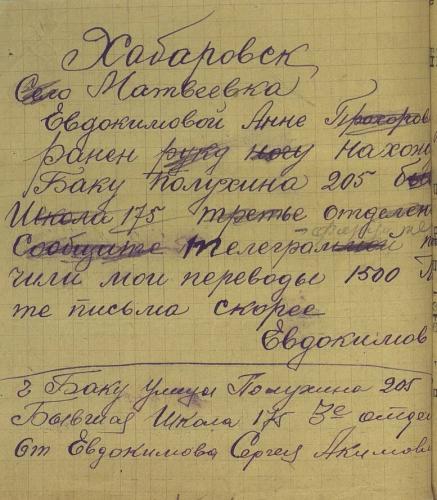 Хабаровск
Село Матвеевка
Евдокимовой Анне Прохоров
ранен руку ногу нахож
Баку Полухина 205
Школа 175 третье отделен
Сообщите телеграммой
чили мои переводы 1500
те письма скорее
Евдокимов
г Баку улица Полухина 205
Бывшая Школа 175 3е отдел
От Евдокимова Сергея Акимов